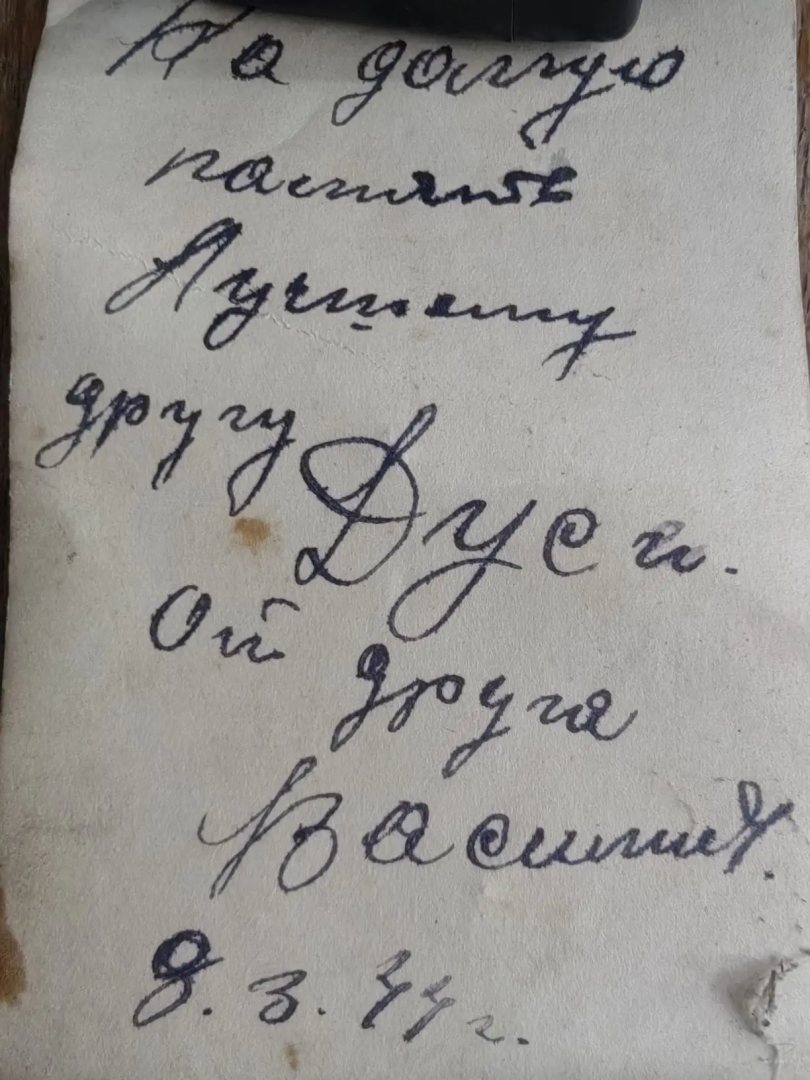 На долгую
память
Лучшему
другу Дуси.
От друга
Василий.
8.3.44г.